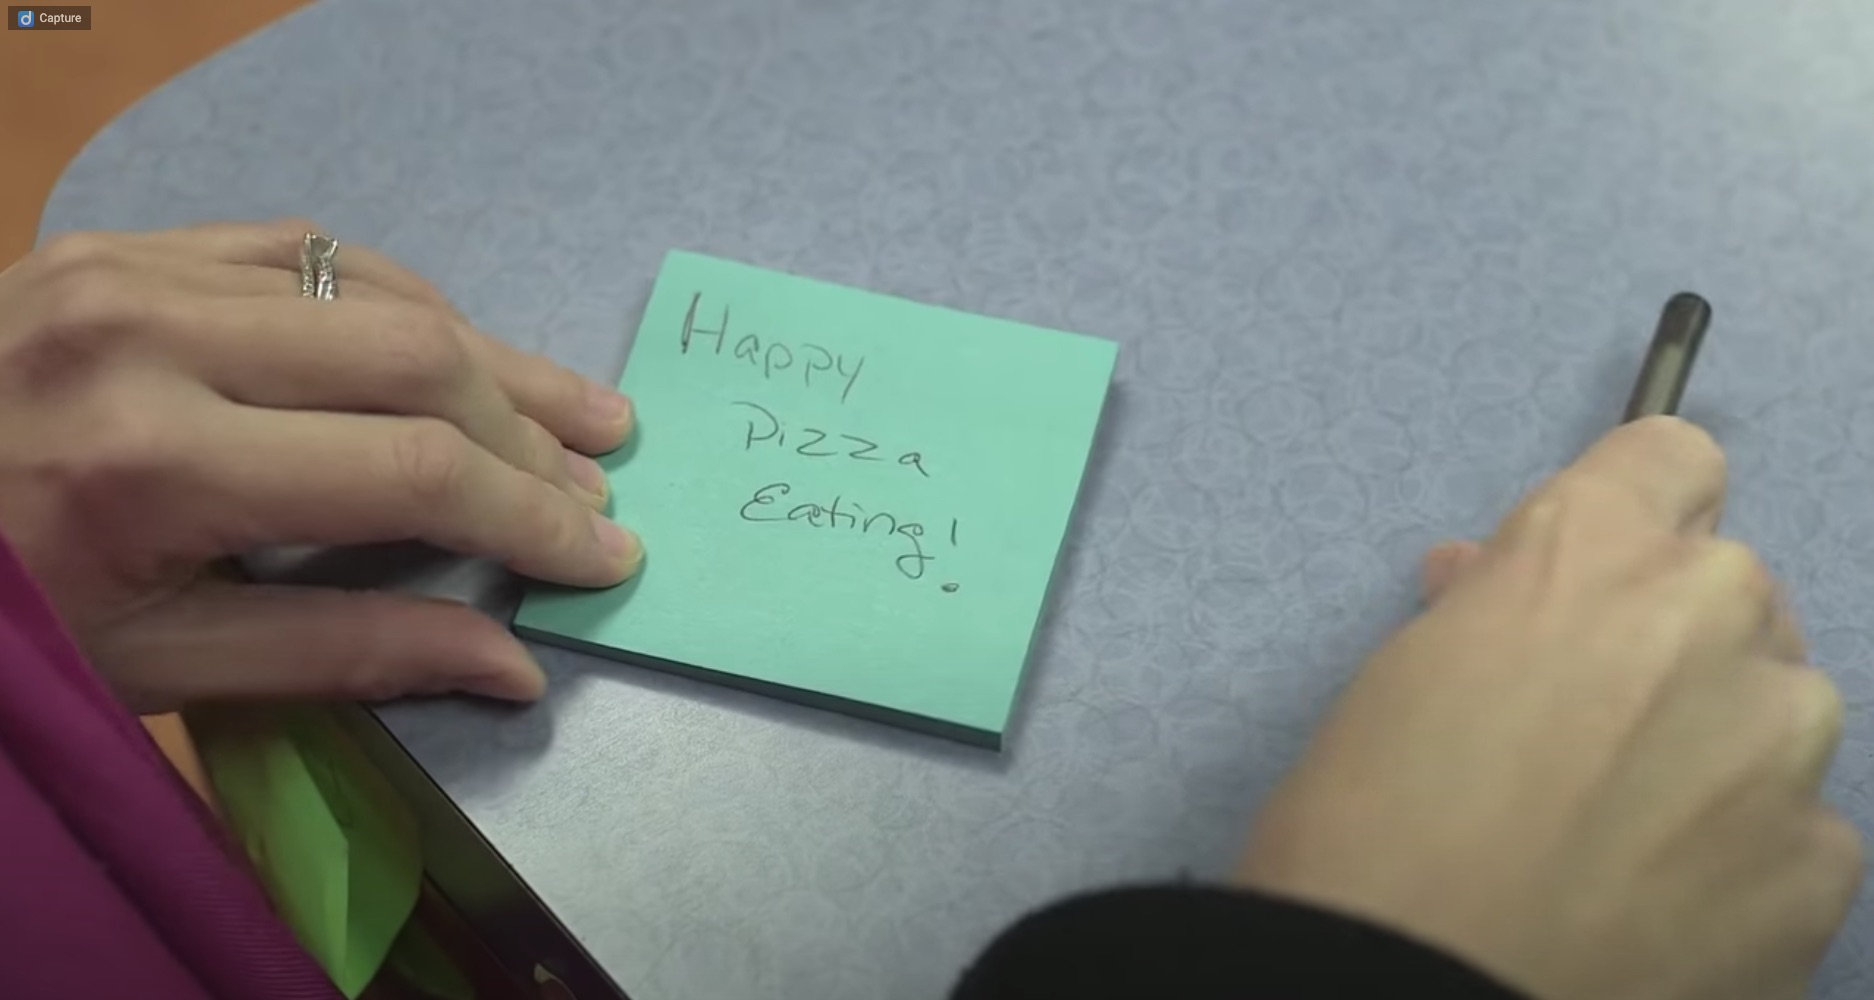 Capture
Happy
Pizza
Eating!